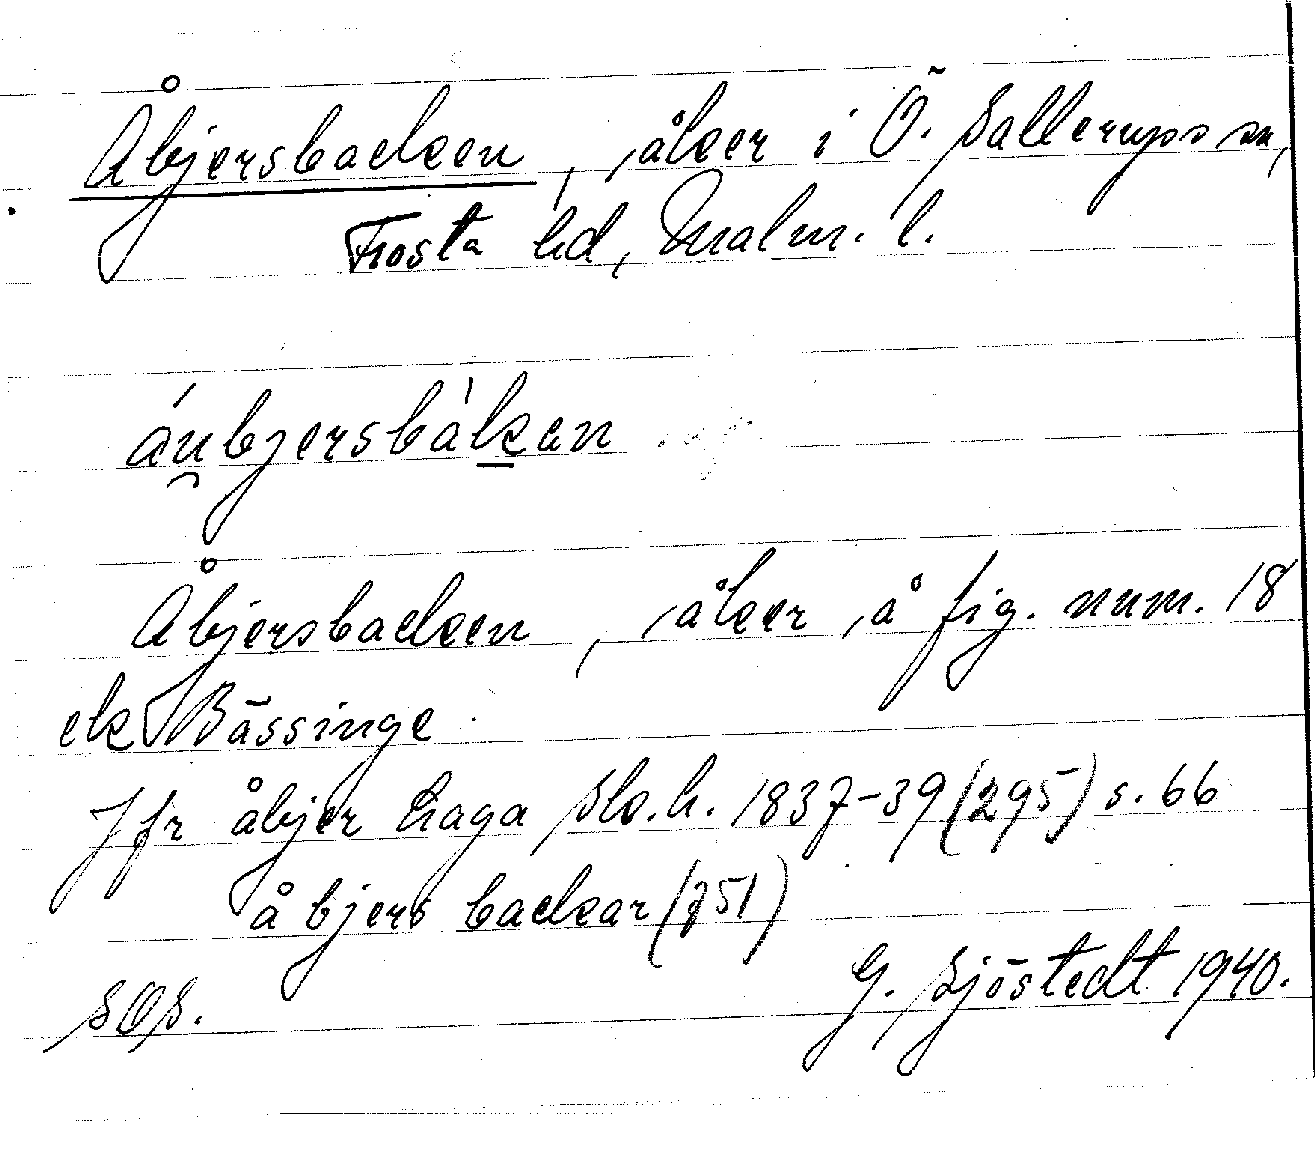 Åbjersbacken, åker i Ö. Sallerups sn,
Frosta hd, Malm. l.
áu̯bjersbàḵan
Åbjersbacken, åker å fig. num. 18
ek Bässinge
Jfr åbjer haga sk.h. 1837-39 (295) s. 66
å bjers backar (751)
SOS. G. Sjöstedt 1940.